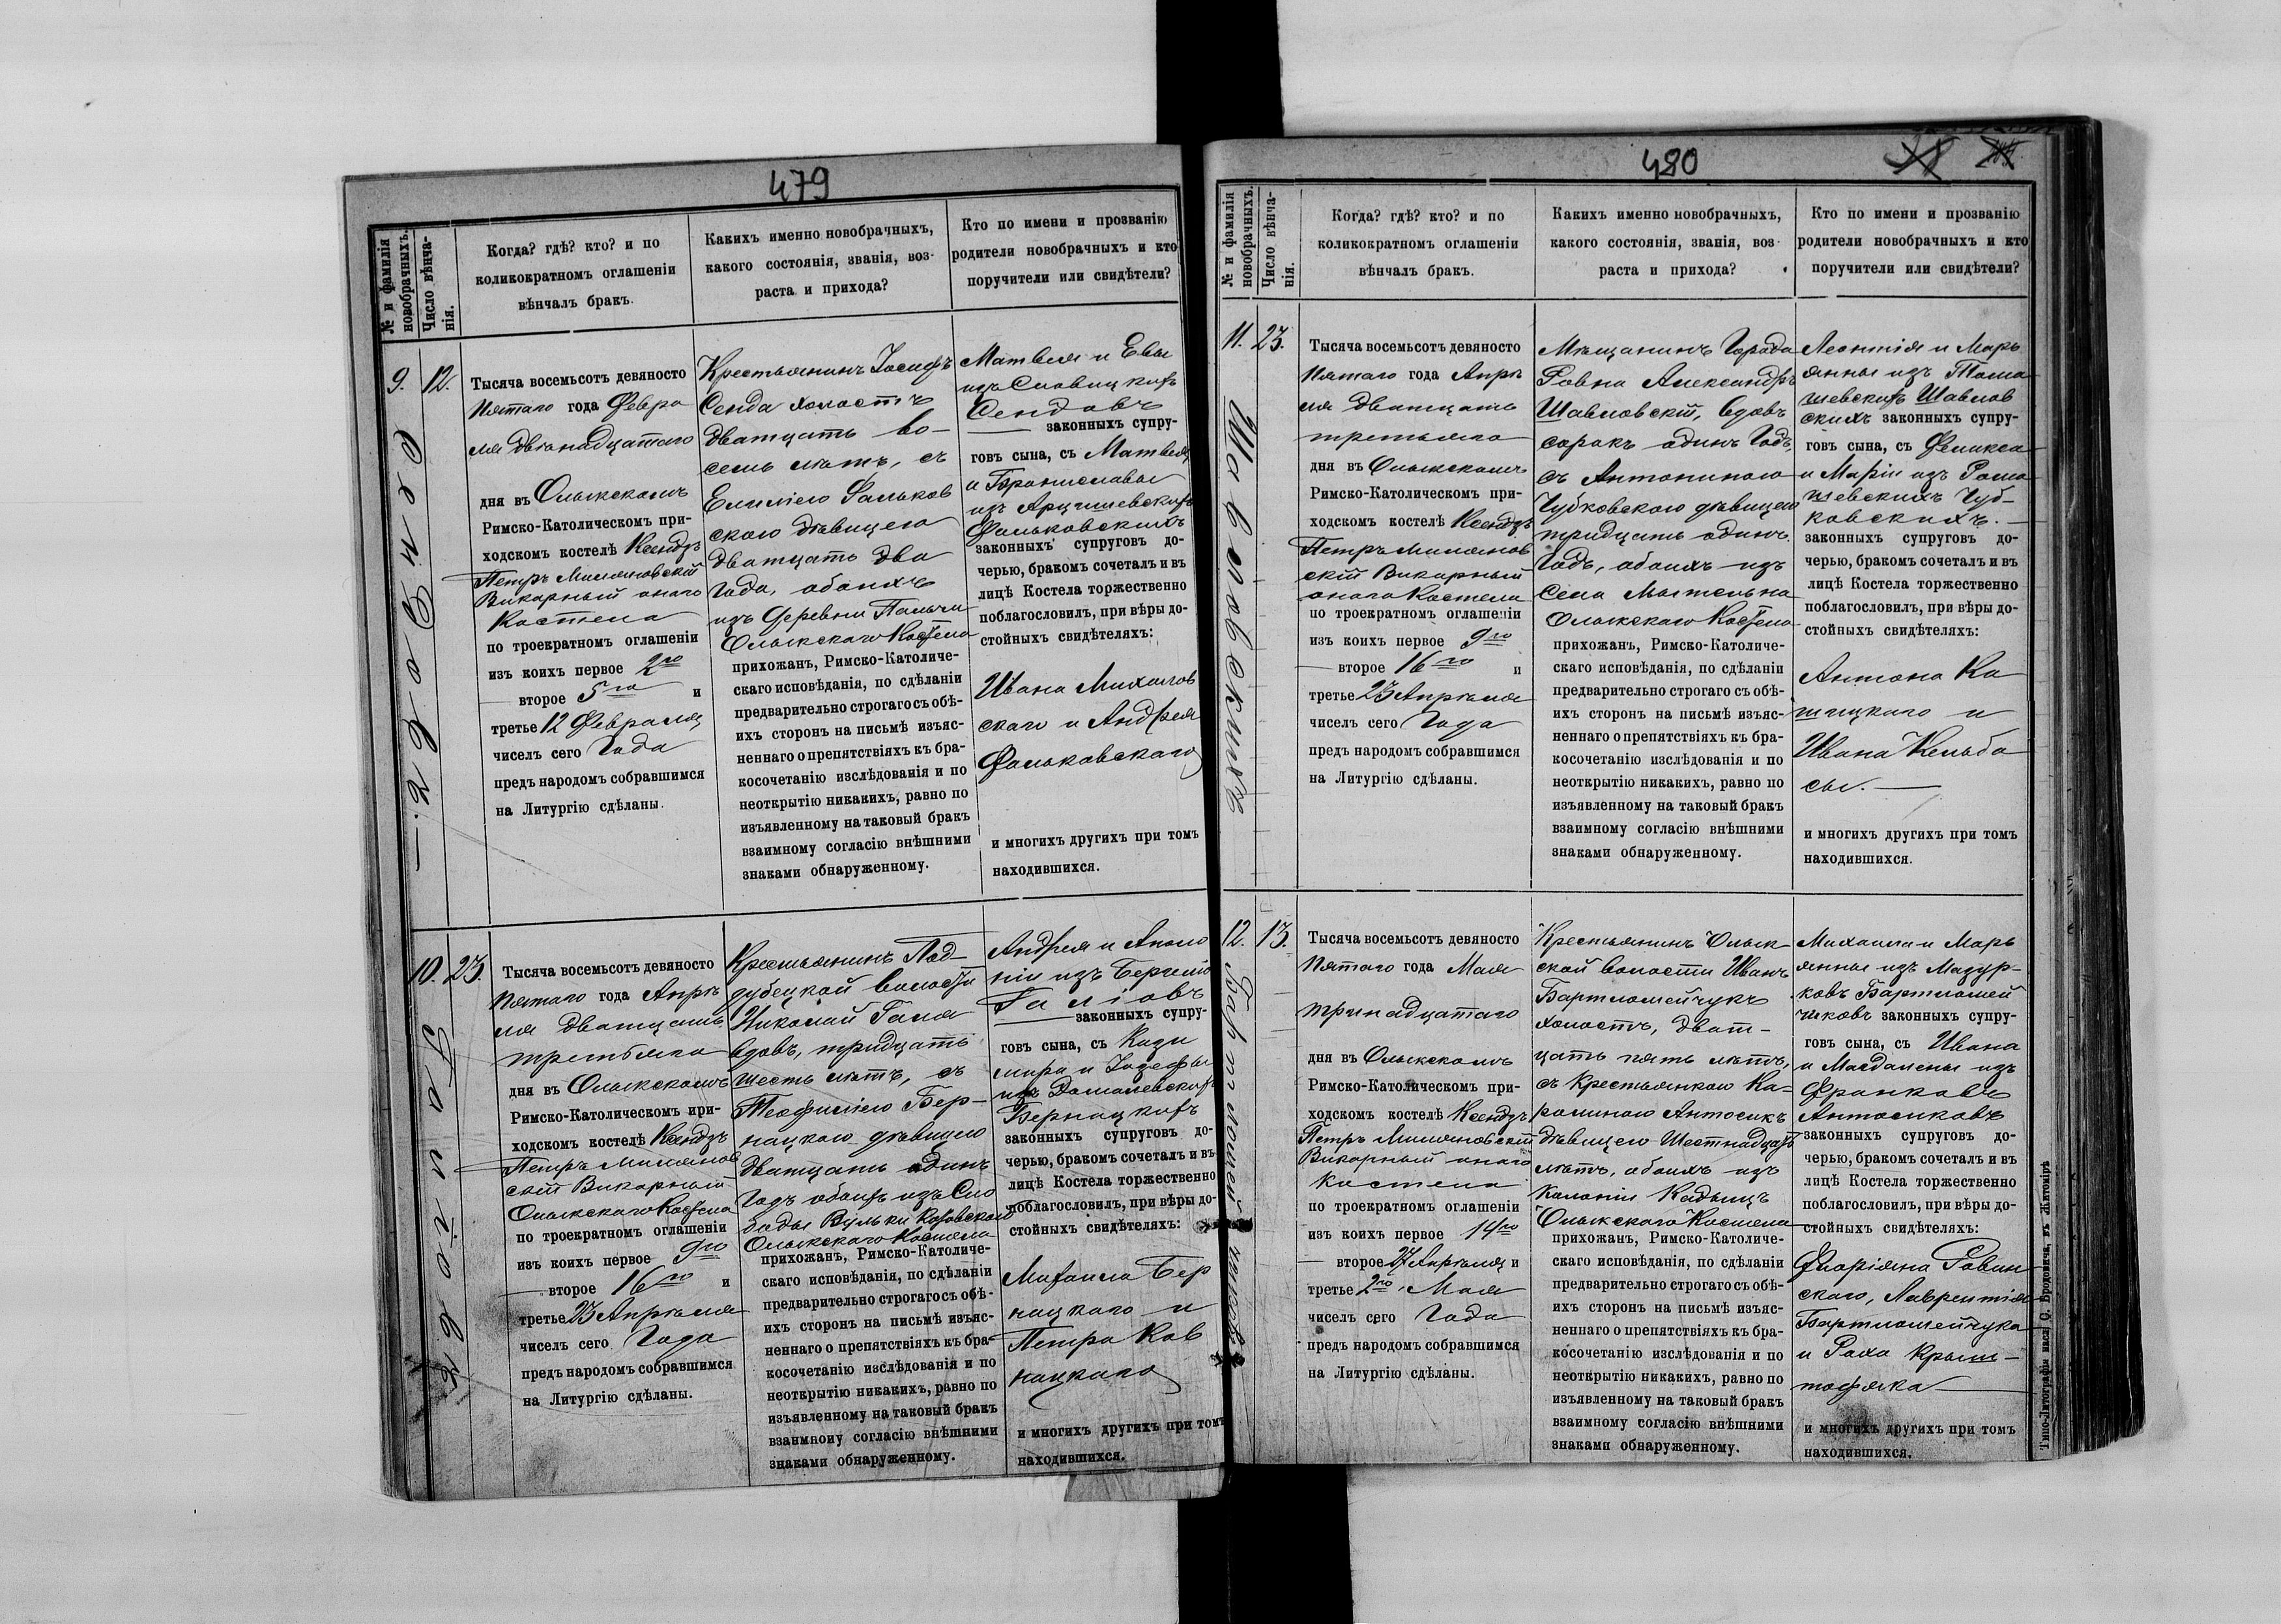 479
№ и фамилія
новобрачныхъ.
Число вѣнча-
нія.
Когда? гдѣ? кто? и по
коликократномъ оглашеніи
вѣнчалъ бракъ.
Какихъ именно новобрачныхъ,
какого состоянія, званія, воз-
раста и прихода?
Кто по имени и прозванію
родители новобрачныхъ и кто
поручители или свидѣтели?
9.
12.
Сендовъ.—
Тысяча восемьсотъ девяносто
Пятаго года Февра
ля двѣнадцатаго
дня въ Олыкскомъ
Римско-Католическомъ при-
ходскомъ костелѣ Ксендзъ
Петръ Миляновскій
Викарный онаго
Костела
по троекратномъ оглашеніи
изъ коихъ первое 2го
второе 5го и
третье 12 Февраля
чиселъ сего Года
предъ народомъ собравшимся
на Литургію сдѣланы.
Крестьянинъ Іосифъ
Сенда холостъ
двадцать во-
семь лѣтъ, съ
Емиліею Фальков
скою дѣвицею
двадцать два
Года, обоихъ
изъ Деревни Пальчи
Олыкскаго Костела
прихожанъ, Римско-Католиче-
скаго исповѣданія, по сдѣланіи
предварительно строгаго съ обѣ-
ихъ сторонъ на письмѣ изъяс-
неннаго о препятствіяхъ къ бра-
косочетанію изслѣдованія и по
неоткрытію никакихъ, равно по
изъявленному на таковый бракъ
взаимному согласію внѣшними
знаками обнаруженному.
Матвея и Евы
изъ Словицкихъ
Сендовъ
законныхъ супру-
говъ сына, съ Матвея
и Брониславы
изъ Арцишевскихъ
Фальковскихъ
законныхъ супруговъ до-
черью, бракомъ сочеталъ и въ
лицѣ Костела торжественно
поблагословилъ, при вѣры до-
стойныхъ свидѣтеляхъ:
Ивана Михалов
скаго и Андрея
Фальковскаго
и многихъ другихъ при томъ
находившихся.
10.
23.
Галіовъ
Тысяча восемьсотъ девяносто
Пятаго года Апрѣ
ля двадцать
третьяго
дня въ Олыкскомъ
Римско-Католическомъ при-
ходскомъ костелѣ Ксендзъ
Петръ Милянов
скій Викарный
Олыкскаго Костела
по троекратномъ оглашеніи
изъ коихъ первое 9го
второе 16го и
третье 23 Апрѣля
чиселъ сего Года
предъ народомъ собравшимся
на Литургію сдѣланы.
Крестьянинъ Под-
дубецкой волости
Николай Галя
вдовъ, тридцать
шесть лѣтъ, съ
Теофиліею Бер-
нацкою дѣвицею
двадцать одинъ
Годъ обоихъ изъ Сло
боды Вульки Котовской
Олыкскаго Костела
прихожанъ, Римско-Католиче-
скаго исповѣданія, по сдѣланіи
предварительно строгаго съ обѣ-
ихъ сторонъ на письмѣ изъяс-
неннаго о препятствіяхъ къ бра-
косочетанію изслѣдованія и по
неоткрытію никакихъ, равно по
изъявленному на таковый бракъ
взаимному согласію внѣшними
знаками обнаруженному.
Андрея и Аполо
ніи изъ
Галіовъ
законныхъ супру-
говъ сына, съ Кази
мира и Іозефы
изъ Домалевскихъ
Бернацкихъ
законныхъ супруговъ до-
черью, бракомъ сочеталъ и въ
лицѣ Костела торжественно
поблагословилъ, при вѣры до-
стойныхъ свидѣтеляхъ:
Михаила Бер
нацкаго и
Петра Ков
нацкаго
и многихъ другихъ при томъ
находившихся.
480
№ и фамилія
новобрачныхъ.
Число вѣнча-
нія.
Когда? гдѣ? кто? и по
коликократномъ оглашеніи
вѣнчалъ бракъ.
Какихъ именно новобрачныхъ,
какого состоянія, званія, воз-
раста и прихода?
Кто по имени и прозванію
родители новобрачныхъ и кто
поручители или свидѣтели?
11.
23.
Шавловскихъ
Тысяча восемьсотъ девяносто
Пятаго года Апрѣ
ля двадцать
третьяго
дня въ Олыкскомъ
Римско-Католическомъ при-
ходскомъ костелѣ Ксендзъ
Петръ Милянов
скій Викарный
онаго Костела
по троекратномъ оглашеніи
изъ коихъ первое 9го
второе 16го и
третье 23 Апрѣля
чиселъ сего Года
предъ народомъ собравшимся
на Литургію сдѣланы.
Мѣщанинъ Города
Ровна Александръ
Шавловскій, вдовъ
сорокъ одинъ Годъ,
съ Антониною
Чубковскою дѣвицею
тридцать одинъ
Годъ, обоихъ изъ
Села Мытельна
Олыкскаго Костела
прихожанъ, Римско-Католиче-
скаго исповѣданія, по сдѣланіи
предварительно строгаго съ обѣ-
ихъ сторонъ на письмѣ изъяс-
неннаго о препятствіяхъ къ бра-
косочетанію изслѣдованія и по
неоткрытію никакихъ, равно по
изъявленному на таковый бракъ
взаимному согласію внѣшними
знаками обнаруженному.
Леонтія и Марь
янны изъ Тома
шевскихъ Шавлов
скихъ законныхъ супру-
говъ сына, съ Феликса
и Маріи изъ Рома
шевскихъ Чуб-
ковскихъ.—
законныхъ супруговъ до-
черью, бракомъ сочеталъ и въ
лицѣ Костела торжественно
поблагословилъ, при вѣры до-
стойныхъ свидѣтеляхъ:
Антона Ка
шицкаго и
Ивана Кельба
сы.—
и многихъ другихъ при томъ
находившихся.
12.
13.
Бартломейчиковъ
Тысяча восемьсотъ девяносто
Пятаго года Мая
тринадцатаго
дня въ Олыкскомъ
Римско-Католическомъ при-
ходскомъ костелѣ Ксендзъ
Петръ Миляновскій
Викарный онаго
Костела
по троекратномъ оглашеніи
изъ коихъ первое 14го
второе 27 Апрѣля и
третье 2го Мая
чиселъ сего Года
предъ народомъ собравшимся
на Литургію сдѣланы.
Крестьянинъ Олык-
ской волости Иванъ
Бартломейчукъ
холостъ, двад-
цать пять лѣтъ,
съ Крестьянкою Ка-
ролиною Антосикъ
дѣвицею Шестнадцать
лѣтъ, обоихъ изъ
Колоніи Кадыщъ
Олыкскаго Костела
прихожанъ, Римско-Католиче-
скаго исповѣданія, по сдѣланіи
предварительно строгаго съ обѣ-
ихъ сторонъ на письмѣ изъяс-
неннаго о препятствіяхъ къ бра-
косочетанію изслѣдованія и по
неоткрытію никакихъ, равно по
изъявленному на таковый бракъ
взаимному согласію внѣшними
знаками обнаруженному.
Михаила и Марь
янны изъ Мазур-
ковъ Бартломей
чиковъ законныхъ супру-
говъ сына, съ Ивана
и Магдалены изъ
Франковъ
Антосиковъ
законныхъ супруговъ до-
черью, бракомъ сочеталъ и въ
лицѣ Костела торжественно
поблагословилъ, при вѣры до-
стойныхъ свидѣтеляхъ:
Флоріяна Ровин
скаго, Лаврентія
Бартломейчука
и Роха Крыш-
тофяка
и многихъ другихъ при томъ
находившихся.
Типо-Литографія насл. С. Бродовича, въ Житомірѣ